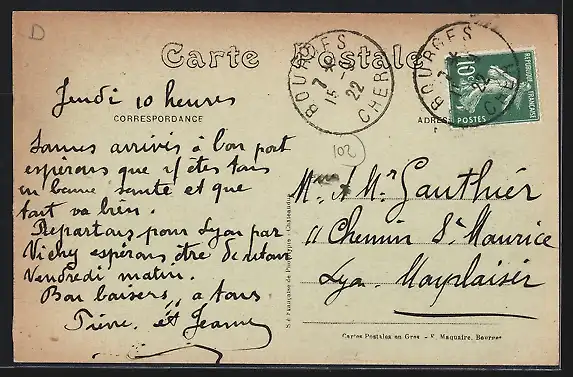 D
Carte Postale
BOURGES
7 *
15 - 1
22
CHER
BOURGES
7 *
15
22
CHER
10c
POSTES
REPUBLIQUE FRANÇAISE
Jeudi 10 heures
CORRESPONDANCE
ADRES
102
Sommes arrivés à bon port
espérons que v/ êtes tous
en bonne santé et que
tout va bien.
Repartons pour Lyon par
Vichy espérons être de retour
Vendredi matin.
Bon baisers a tous
et Jeanne
Gauthier
11 Chemin St Maurice
Lyon Monplaisir
Sté Française de Phototypie - Châteaudun
Cartes Postales en Gros - E. Maquaire, Bourges